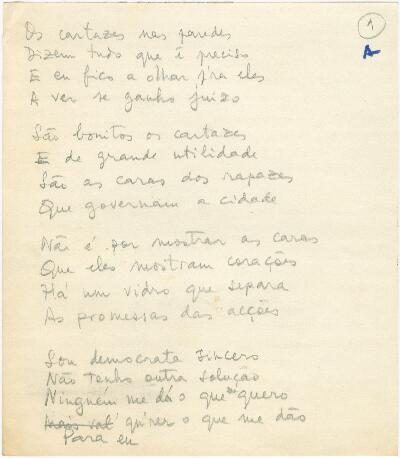 1,
A
Os cartazes nas paredes
Dizem tudo que é preciso
E eu fico a olhar p'ra eles
A ver se ganho juízo
São bonitos os cartazes
E de grande utilidade
São as caras dos rapazes
Que governam a cidade
Não é por mostrar as caras
Que eles mostram corações
Há um vidro que separa
As promessas das acções
Sou democrata sincero
Não tenho outra solução
Ninguém me dá o que eu quero
Mais val' qu'rer o que me dão
Para eu